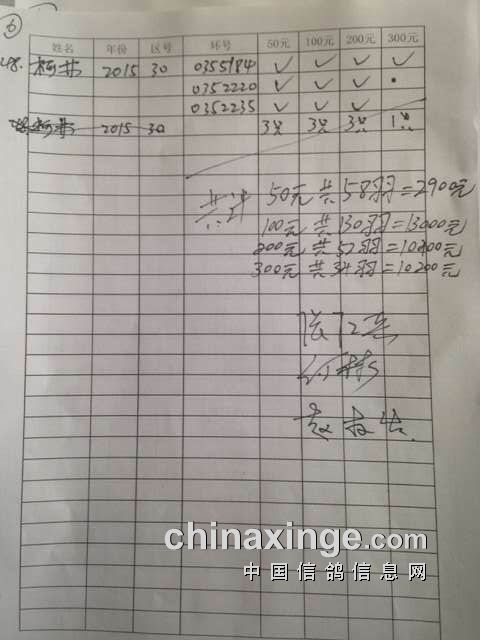 6
姓名 年份 区号 环号 50元 100元 200元 300元
48. 柯芬 2015 30 0355984 ✓ ✓ ✓ ✓
0352220 ✓ ✓ ✓ •
0352235 ✓ ✓ ✓
2015 30 3只 3只 3只 1只
共计 50元 共58羽=2900元
100元 共130羽=13000元
200元 共52羽=10400元
300元 共34羽=10200元
chinaxinge.com
中国信鸽信息网